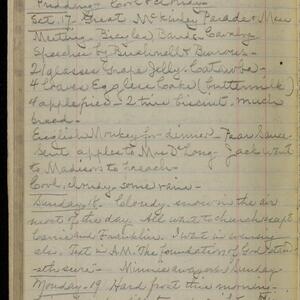 Pudding - Cool & cloudy -
Oct. 17 - Great McKinley Parade & Mass
Meeting - Bicycles Bands - Cavalry
Speeches by Bushnell & Burrows -
2 glasses Grape Jelly - Catawba -
4 Loaves Eggless Cake (buttermilk)
4 apple pies - 2 tins biscuit. much
bread -
English Monkey for dinner - Pear Sauce
Sent apples to Mrs D Long - Jack went
to Madison to preach -
Cool, cloudy, some rain -
Sunday 18 - Cloudy - snow in the air
most of the day. All went to church except
and Franklin. I went in evening
also. Text in A.M. The foundation of God stand
eth sure" - Minnie away over Sunday
Monday - 19 Hard frost this morning -